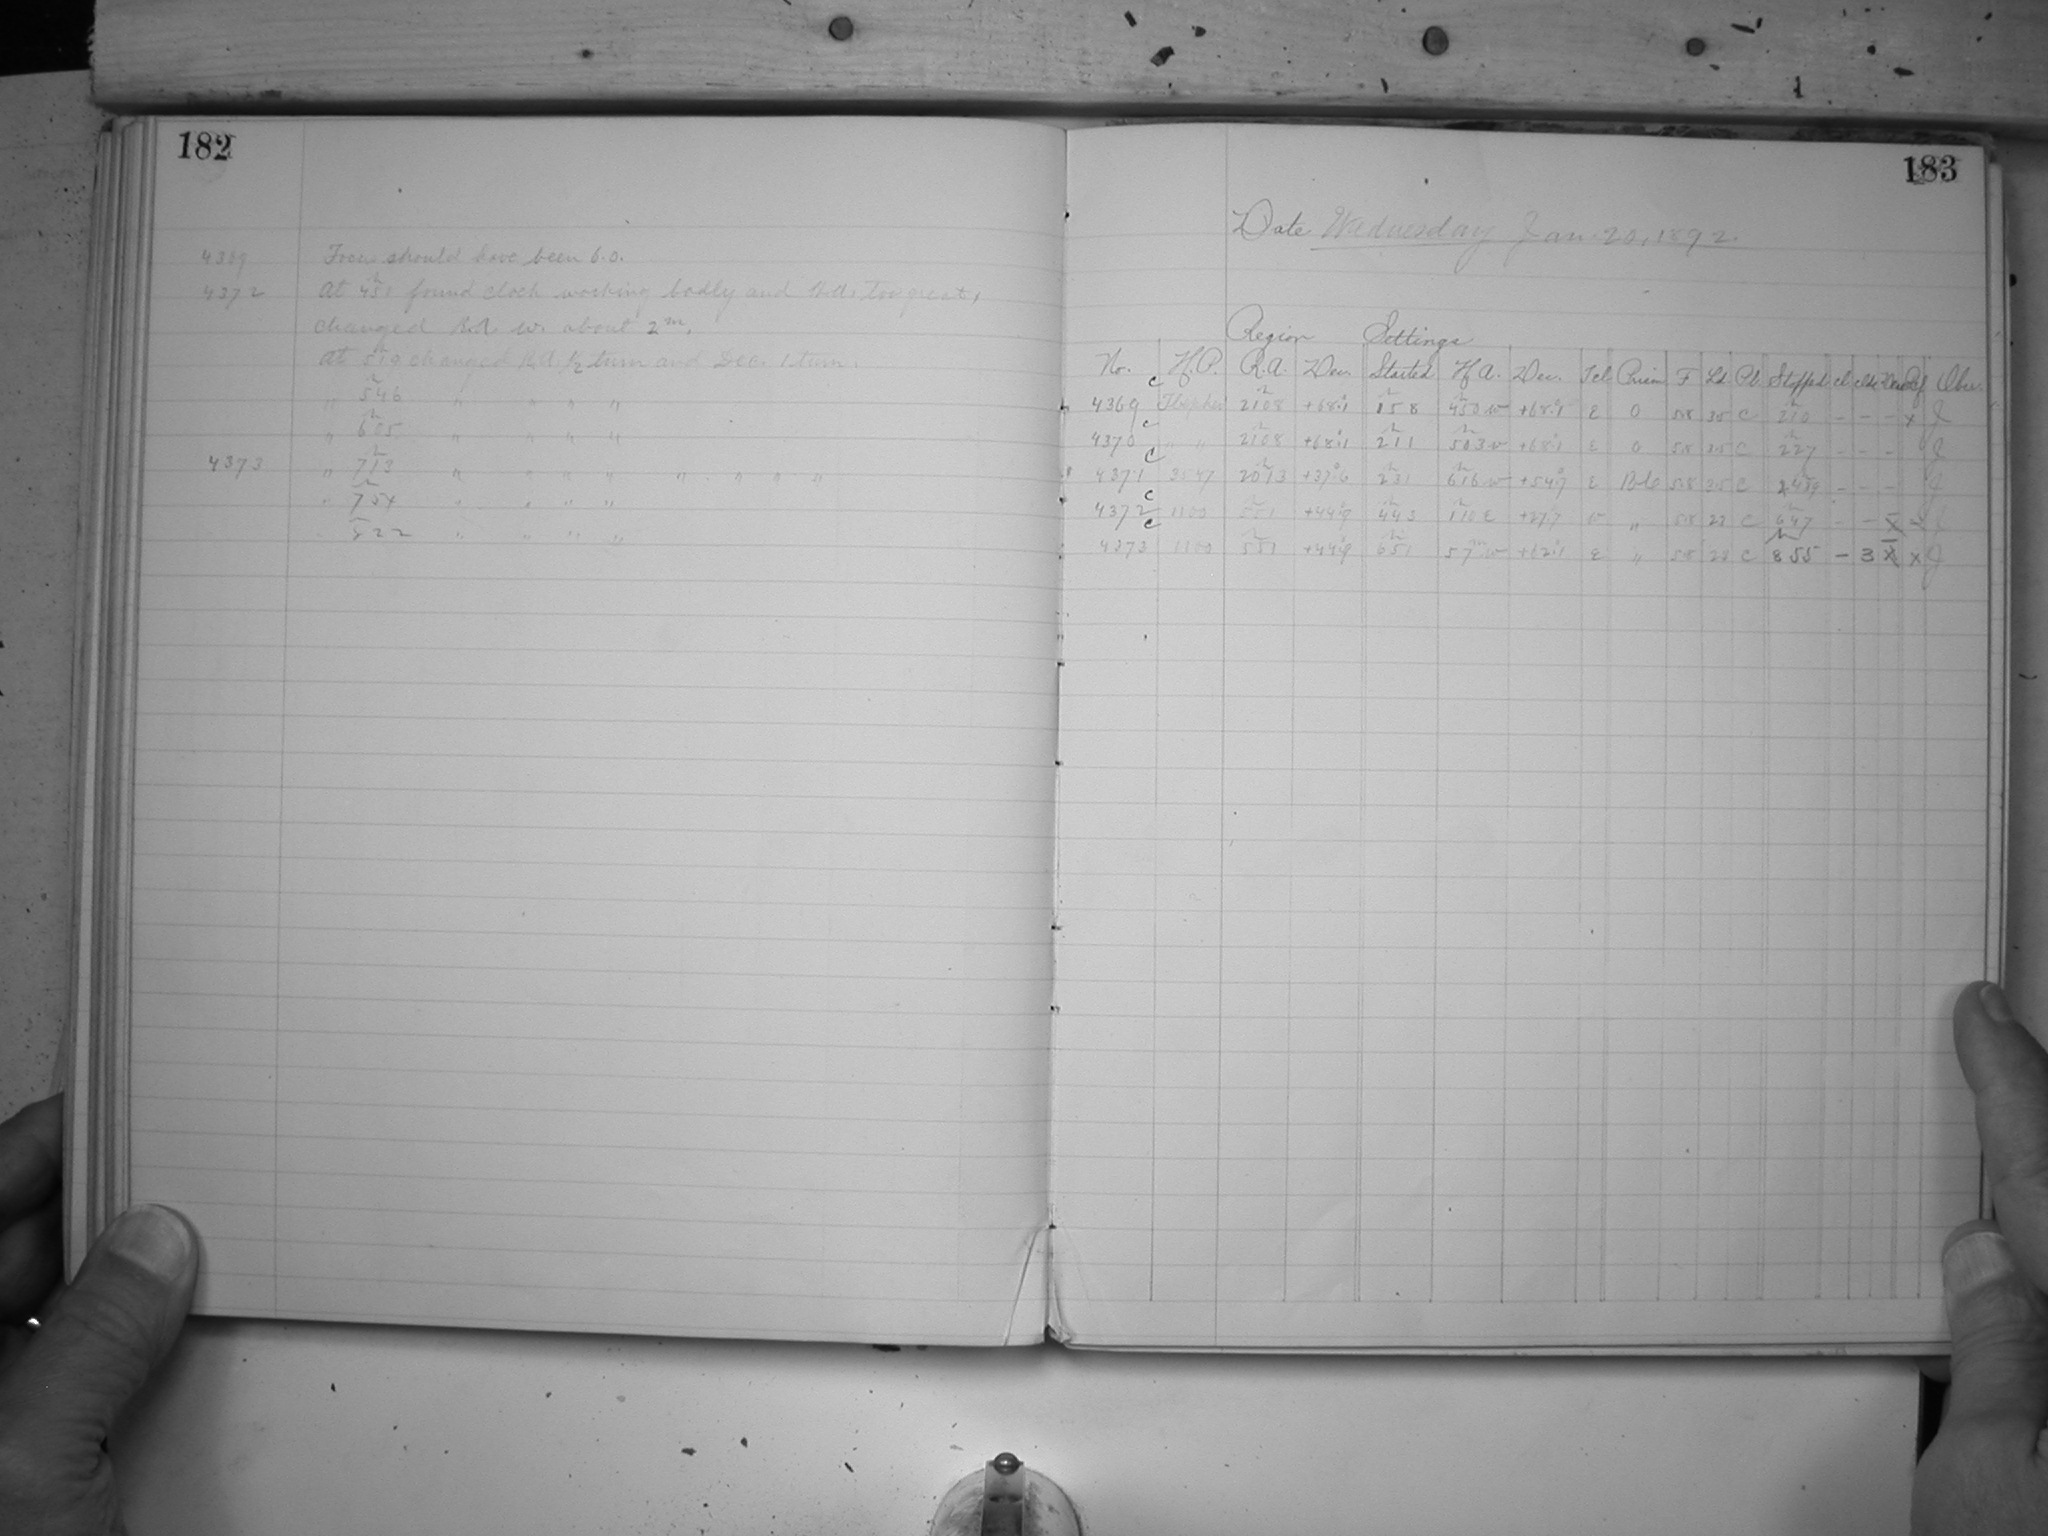 182
4369 Focus should have been 6.0.
4372 At 451 found clock working badly and too great,
changed R.A. w. about 2m.
At 519 changed R.A. 1/2 turn and Dec. 1 turn.
" 546 " " " "
" 605 " " " "
4373 " 713 " " " " " " " " "
" 754 " " " "
" 822 " " " "
183
Date Wednesday Jan. 20, 1892.
Region Settings
No. H.P. R.A. Dec. Started H.A. Dec. Tel Prism F Ld Pl. Stopped cl Obs.
4369 c 2108 +68.1 158 450 w +68.1 E 0 58 35 C 210 - - - x J
4370 c " " 2108 +68.1 211 503 w +68.1 E 0 58 35 C 227 - - - J
4371 c 2013 +37.6 231 616 w +54.7 E 58 35 C - - - J
4372 c 1100 551 +44.9 443 110 E w " 58 27 C 647 - - x
4373 c 1100 551 +44.9 651 57m w +62.1 E " 58 28 C 855 - 3 x x J